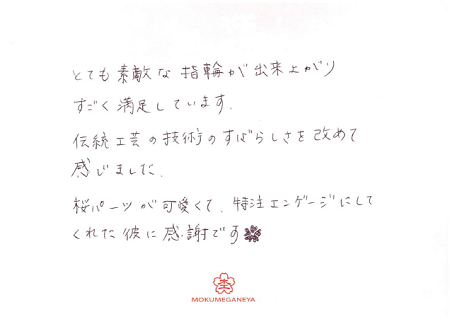 とても素敵な指輪が出来上がり
すごく満足しています.
伝統工芸の技術のすばらしさを改めて
感じました.
桜パーツが可愛くて、特注エンゲージにして
くれた彼に感謝です
杢
MOKUMEGANEYA